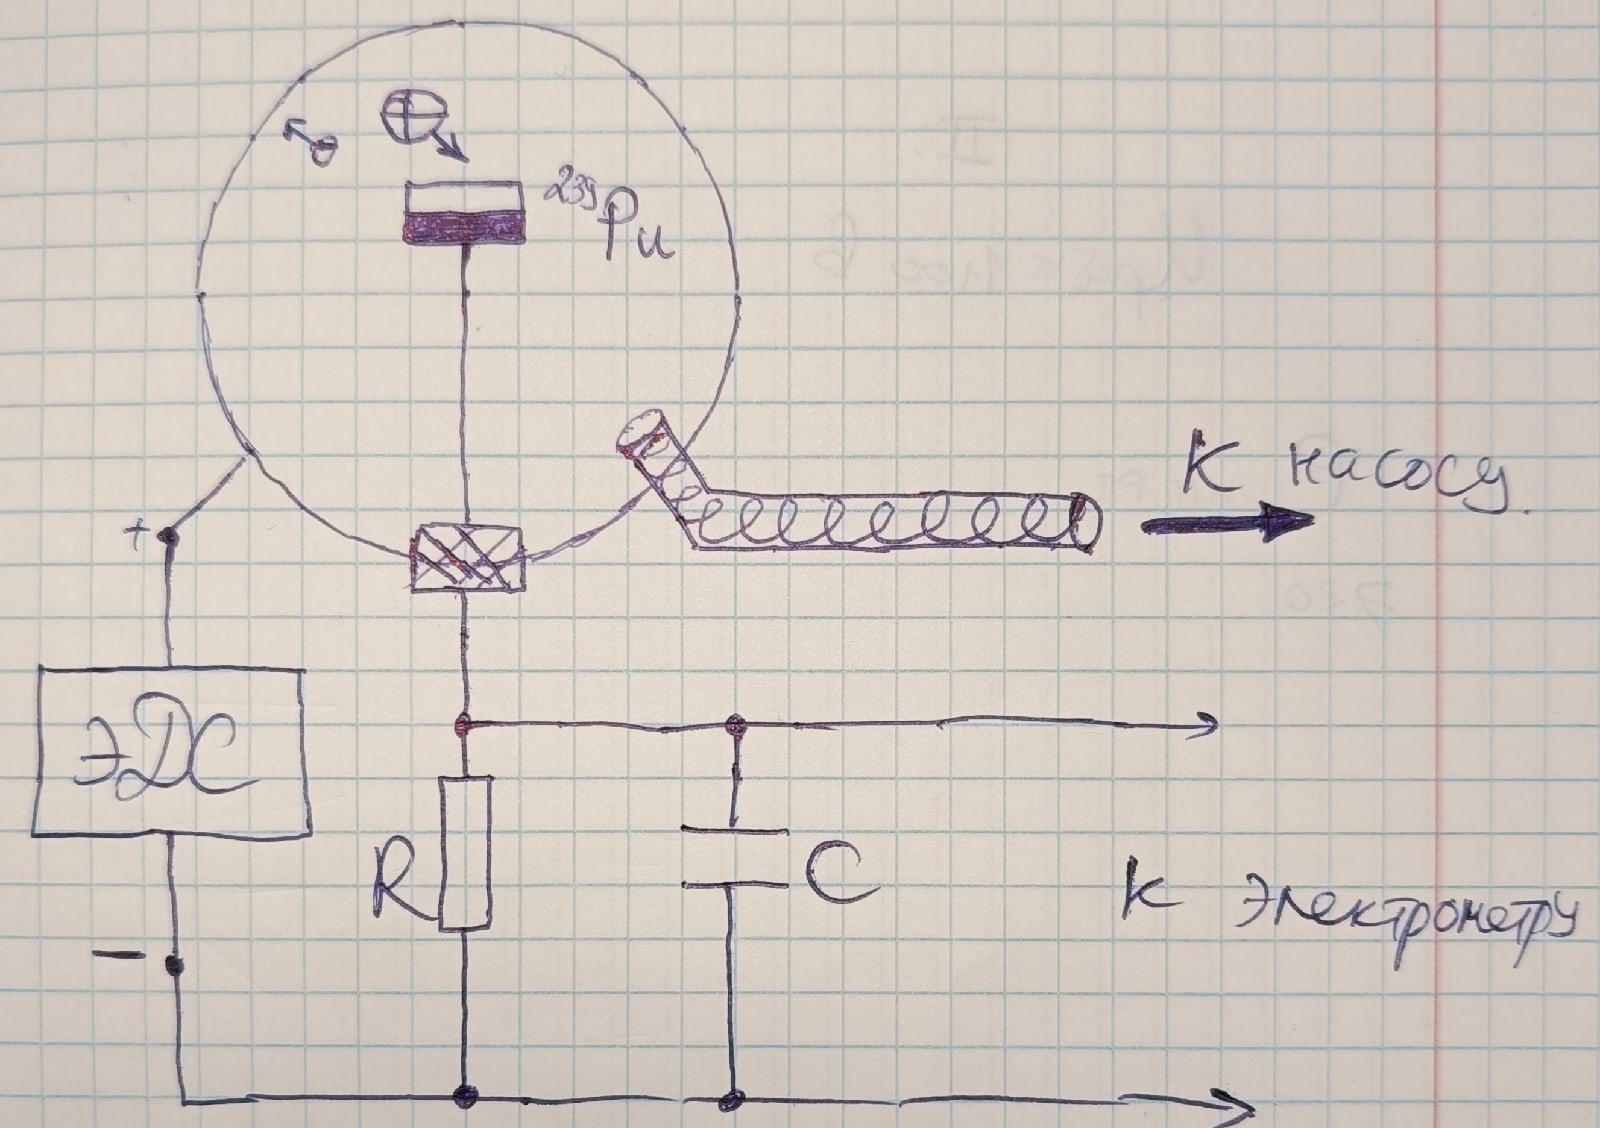 ²³⁹Pu
К насосу.
+
ЭДС
R
C
К электрометру
−